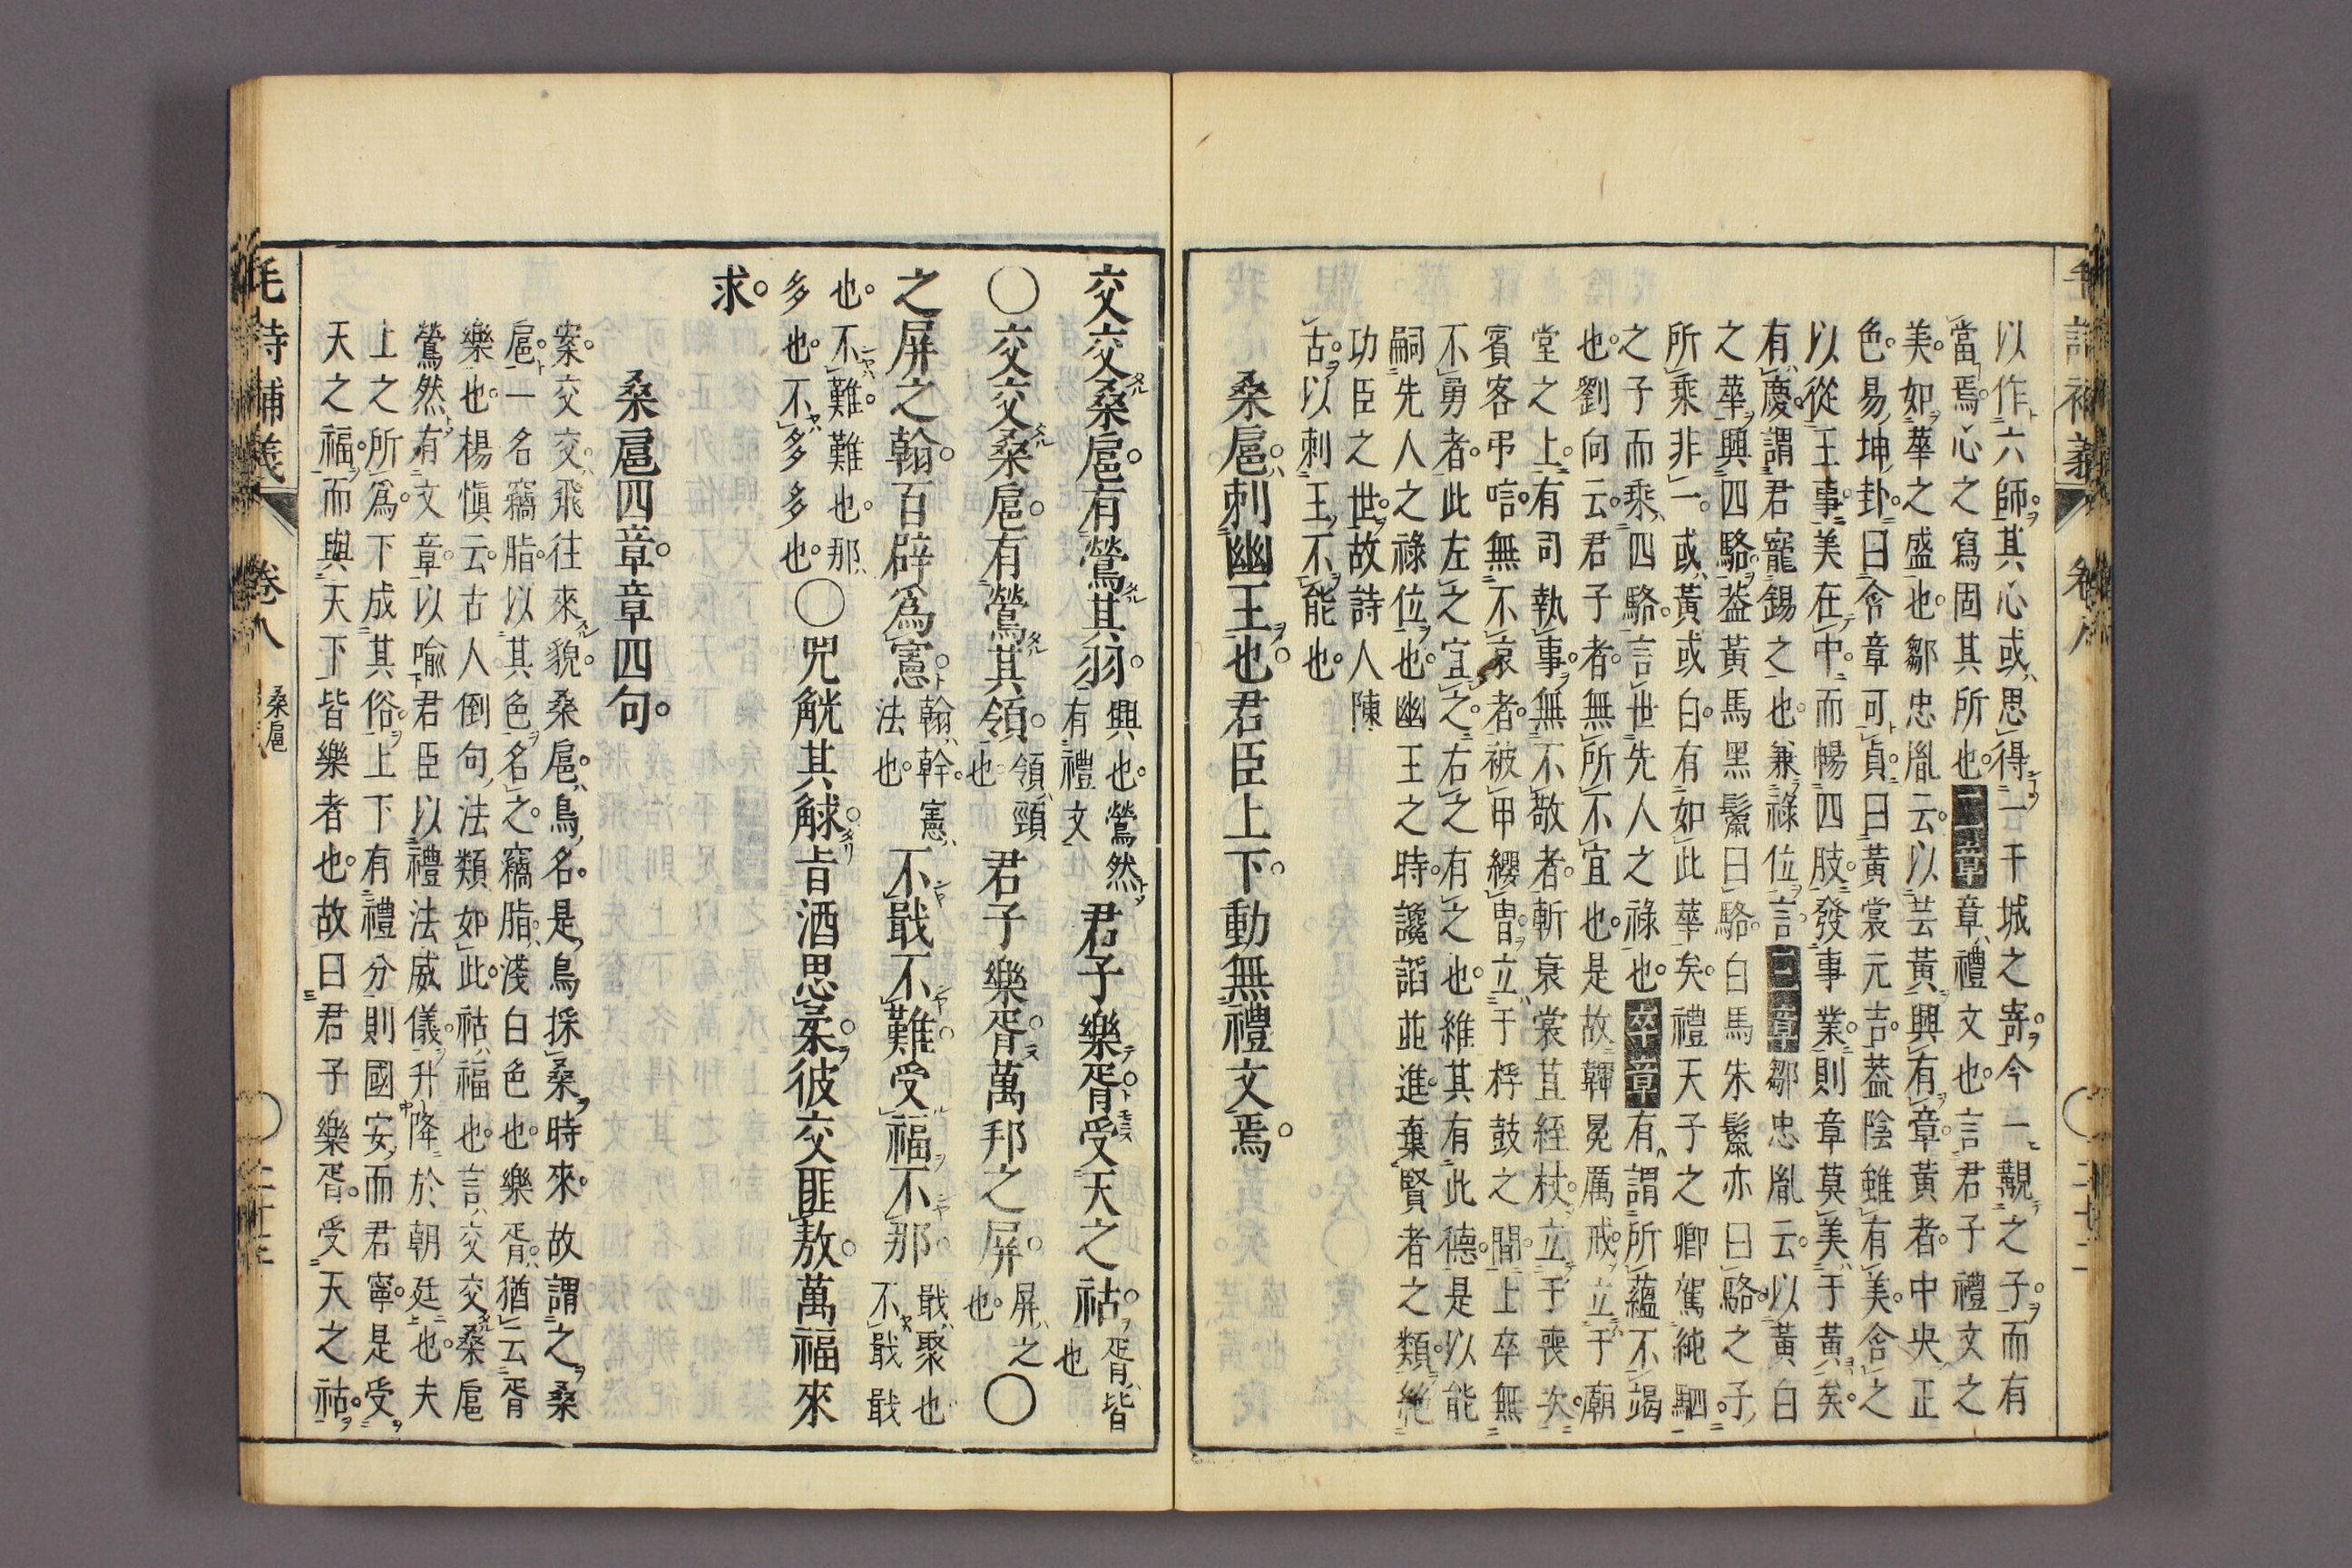 以作六師其心或思得一干城之寄今一覯之子而有
當焉心之寫固其所也二章章禮文也言君子禮文之
美如華之盛也鄒忠胤云以芸黃興有章黃者中央正
色易坤卦曰含章可貞曰黃裳元吉葢陰雖有美含之
以從王事美在中而暢四肢發事業則章莫美于黃矣
有慶謂君寵錫之也兼祿位言三章鄒忠胤云以黃白
之華興四駱葢黃馬黑鬣曰駱白馬朱鬣亦曰駱之子
所乘非一或黃或白有如此華矣禮天子之卿駕純駟
之子而乘四駱言世先人之祿也卒章有謂所蘊不竭
也劉向云君子者無所不宜也是故鞸冕厲戒立于廟
堂之上有司執事無不敬者斬衰裳苴絰杖立于喪次
賓客弔唁無不哀者被甲纓冑立于桴鼓之間上卒無
不勇者此左之宜之右之有之也維其有此德是以能
嗣先人之祿位也幽王之時讒謟並進棄賢者之類絶
功臣之世故詩人陳
古以刺王不能也
桑扈刺幽王也君臣上下動無禮文焉
毛詩補義 卷八
交交桑扈有鶯其羽興也鶯然有禮文君子樂胥受天之祜胥皆也
〇交交桑扈有鶯其領領頸也君子樂胥萬邦之屏屏之也〇
之屏之翰百辟爲憲翰幹憲法也不戢不難受福不那戢聚也不戢戢
也不難難也那多也不多多也〇兕觥其觩旨酒思柔彼交匪敖萬福來
求
桑扈四章章四句
案交交飛往來貌桑扈鳥名是鳥採桑時來故謂之桑
扈一名竊脂以其色名之竊脂淺白色也樂胥猶云胥
樂也楊愼云古人倒句法類如此祜福也言交交桑扈
鶯然有文章以喩君臣以禮法威儀升降於朝廷也夫
上之所爲下成其俗上下有禮分則國安而君寧是受
天之福而與天下皆樂者也故曰君子樂胥受天之祜
毛詩補義 卷八 桑扈